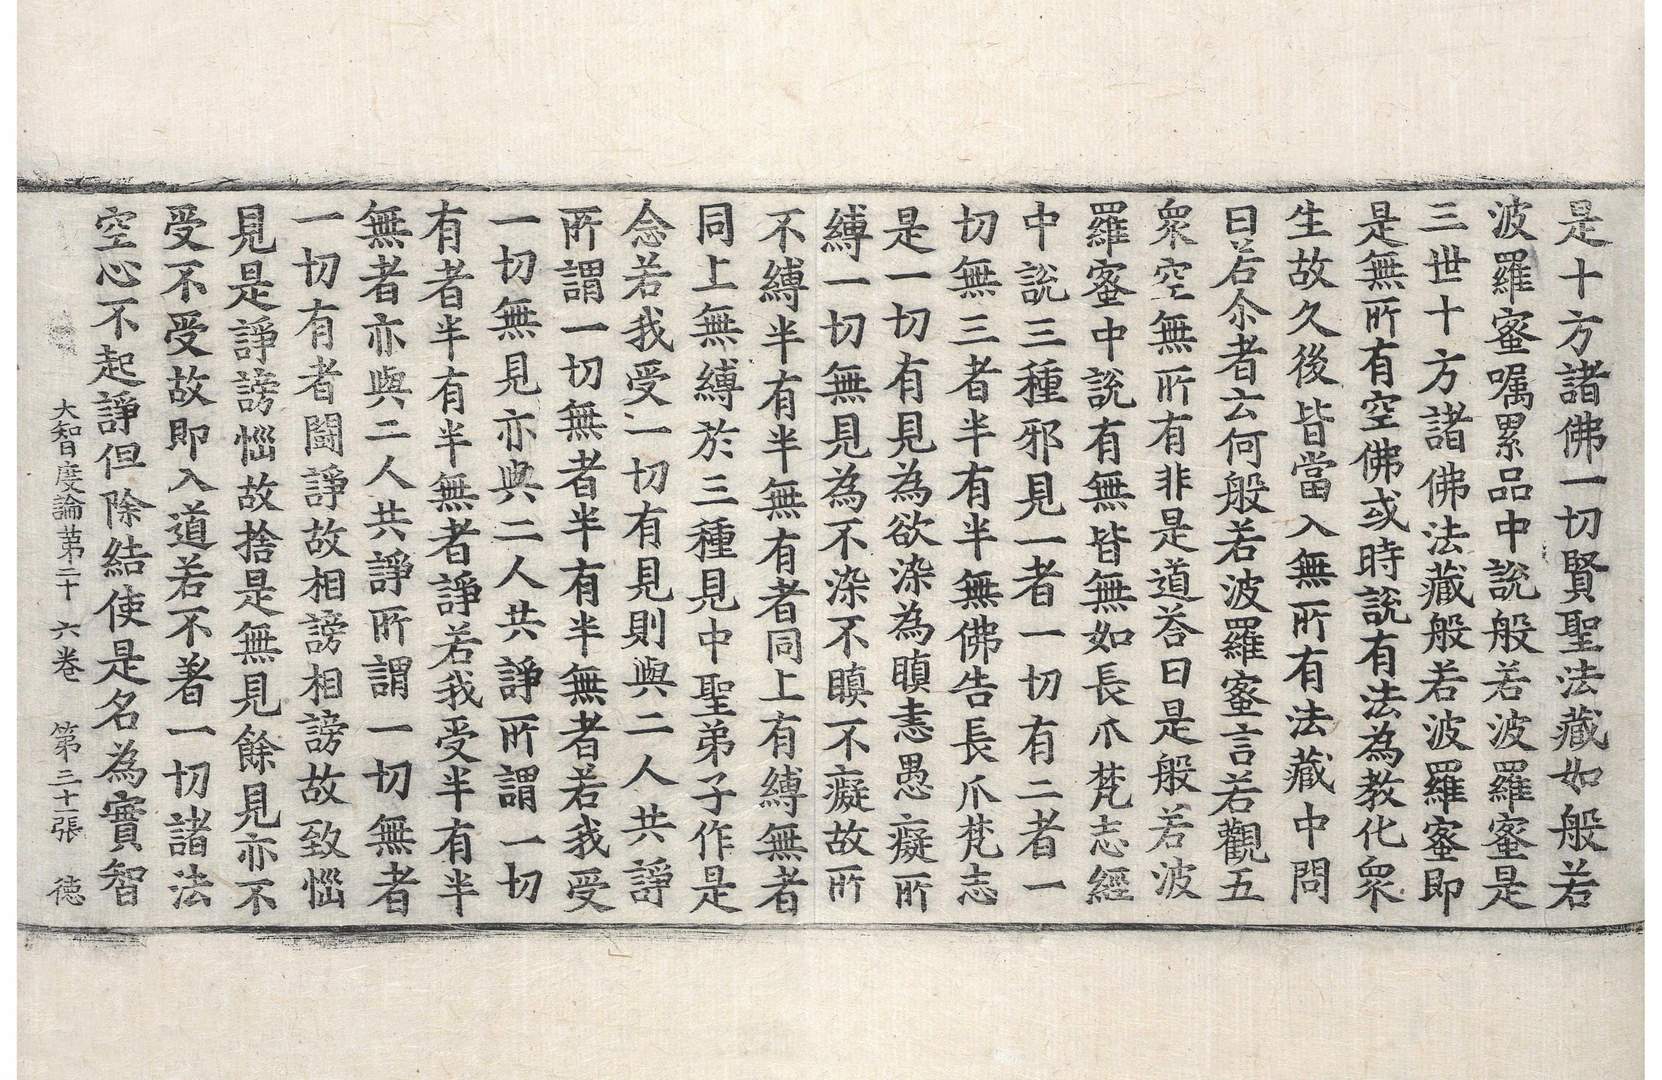 是十方諸佛一切賢聖法藏如般若
波羅蜜嘱累品中說般若波羅蜜是
三世十方諸佛法藏般若波羅蜜即
是無所有空佛或時說有法為教化衆
生故久後皆當入無所有法藏中問
曰若尒者云何般若波羅蜜言若觀五
衆空無所有非是道荅曰是般若波
羅蜜中說有無皆無如長爪梵志經
中說三種邪見一者一切有二者一
切無三者半有半無佛告長爪梵志
是一切有見為欲染為瞋恚愚癡所
縛一切無見為不染不瞋不癡故所
不縛半有半無有者同上有縛無者
同上無縛於三種見中聖弟子作是
念若我受一切有見則與二人共諍
所謂一切無者半有半無者若我受
一切無見亦與二人共諍所謂一切
有者半有半無者諍若我受半有半
無者亦與二人共諍所謂一切無者
一切有者鬪諍故相謗相謗故致惱
見是諍謗惱故捨是無見餘見亦不
受不受故即入道若不著一切諸法
空心不起諍但除結使是名為實智
大智度論第二十六卷 第二十一張 德